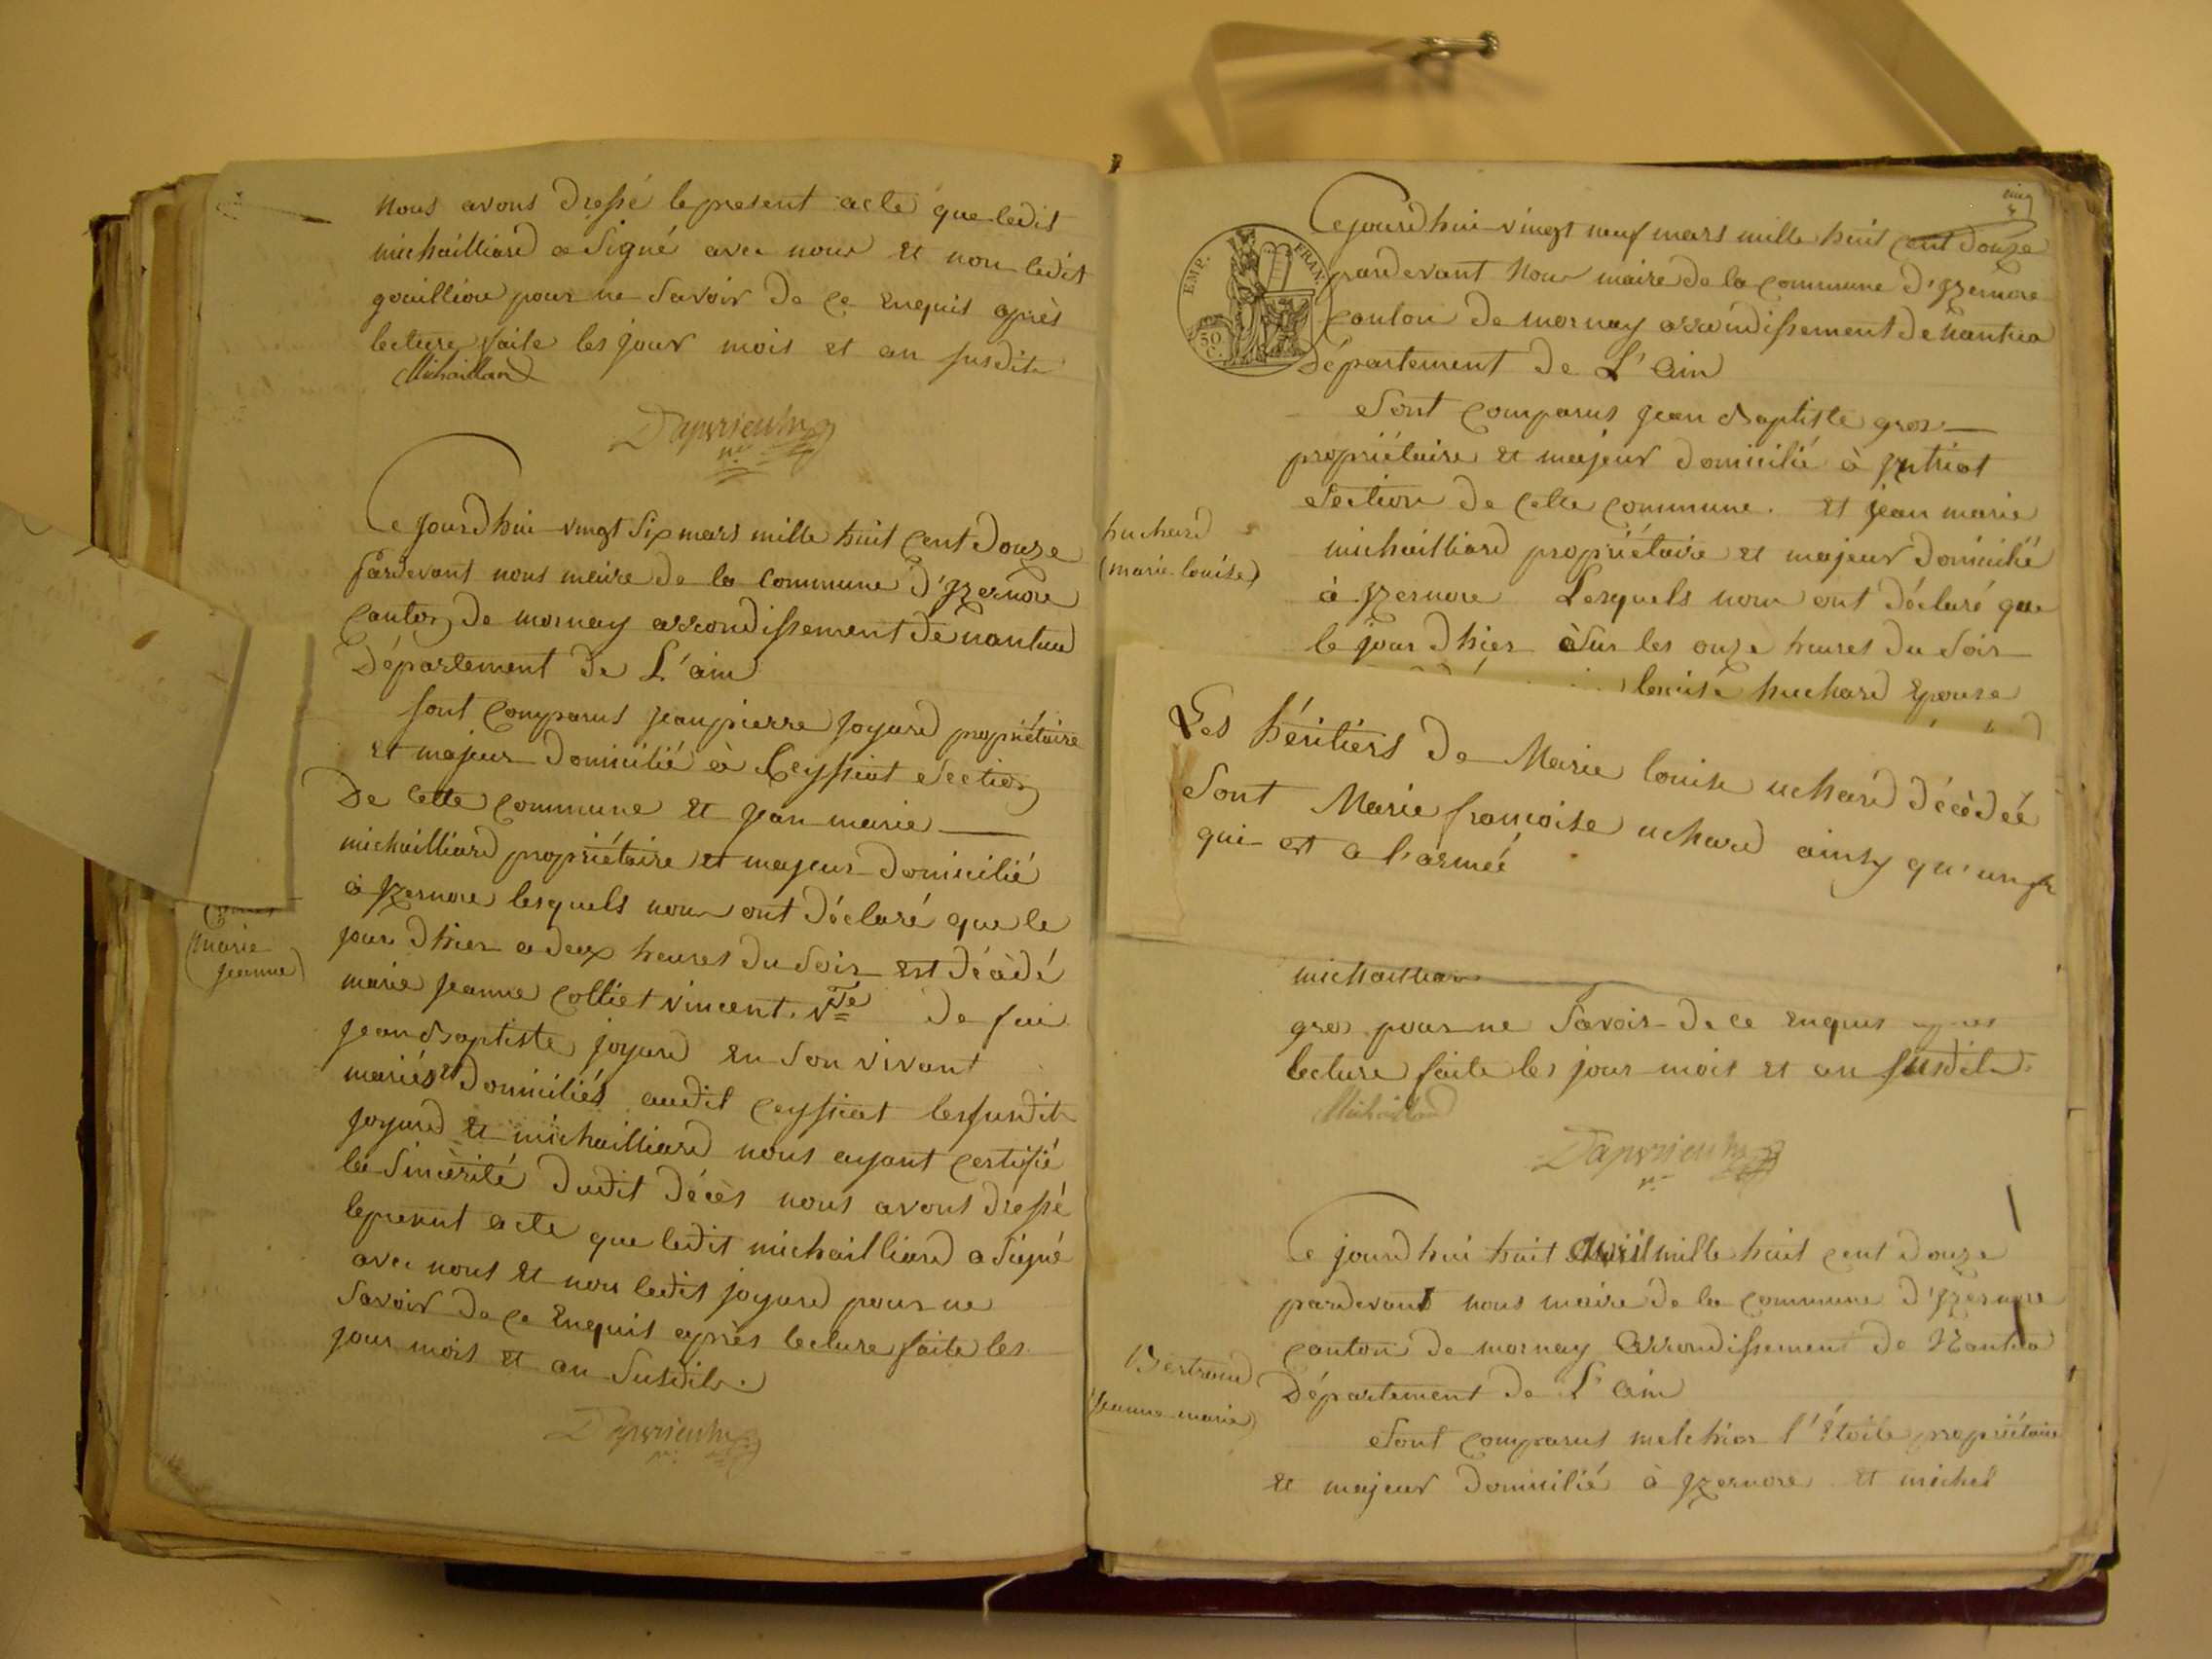 nous avons dressé le present acte que ledit
michailliard a signé avec nous et non ledit
gouilliou pour ne savoir de ce enquis après
lecture faite les jour mois et an susdits
Michaillard
Ce jourdhui vingt six mars mille huit cent douze
pardevant nous maire de la commune d'yzernore
canton de mornay arrondissement de nantua
Département de L'ain
sont comparus jean pierre joyard propriétaire
et majeur domicilié à Ceyssiat section
De cette commune et jean marie
michailliard propriétaire et majeur domicilié
à yzernore lesquels nous ont déclaré que le
jour d'hier a deux heures du soir est décédé
marie jeanne colliet vincent. Vve de feu
jean Baptiste joyard en son vivant
mariés et domiciliés audit ceyssiat les susdits
joyard et michailliard nous ayant certifié
la sincèrité dudit décès nous avons dressé
le present acte que ledit michailliard a signé
avec nous et non ledit joyard pour ne
savoir de ce enquis après lecture faite les
jour mois et an susdits.
(marie
jeanne)
EMP. FRAN.
50 C.
Cejourdhui vingt neuf mars mille huit cent douze
pardevant nous maire de la commune d'yzernore
canton de mornay arrondissement de nantua
département de L'ain
sont comparus jean Baptiste gros
propriétaire et majeur domicilié à yntriat
section de cette commune. et jean marie
michailliard propriétaire et majeur domicilié
à yzernore Lesquels nous ont déclaré que
le jour d'hier à sur les onze heures du soir
louise huchard epouse
huchard
(marie louise)
Les héritiers de Marie louise uchard décèdeé
sont Marie françoise uchard ainsy qu'un
qui est a l'armeé
gros pour ne savoir de ce enquis
lecture faite les jour mois et an susdits.
Michaillard
Ce jourdhui huit avril mille huit cent douze
pardevant nous maire de la commune d'yzernore
canton de mornay arrondissement de Nantua
Département de L'ain
sont comparus melchior l'Étoile propriétaire
et majeur domicilié à yzernore et michel
Bertrand
(jeanne marie)